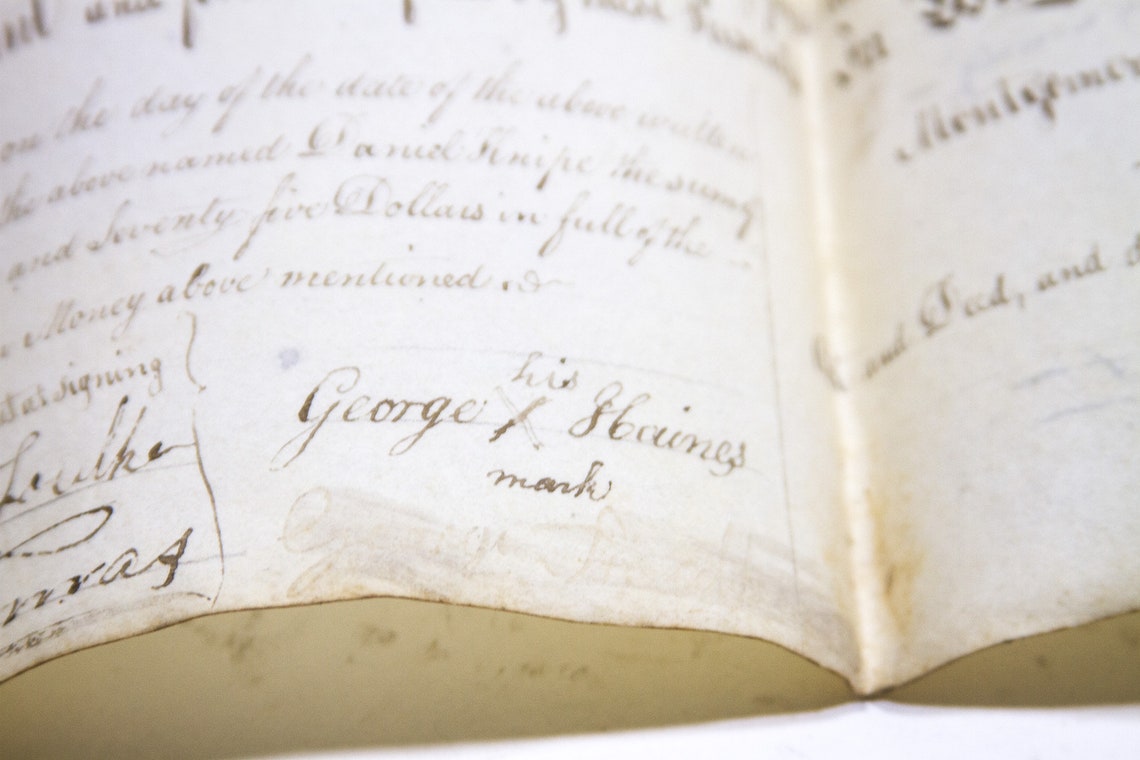 and
on the day of the date of the above written
the above named Daniel Knipe the sum of
and Seventy five Dollars in full of the
Money above mentioned
at signing
his
George X Haines
mark
Montgomery
and Deed, and